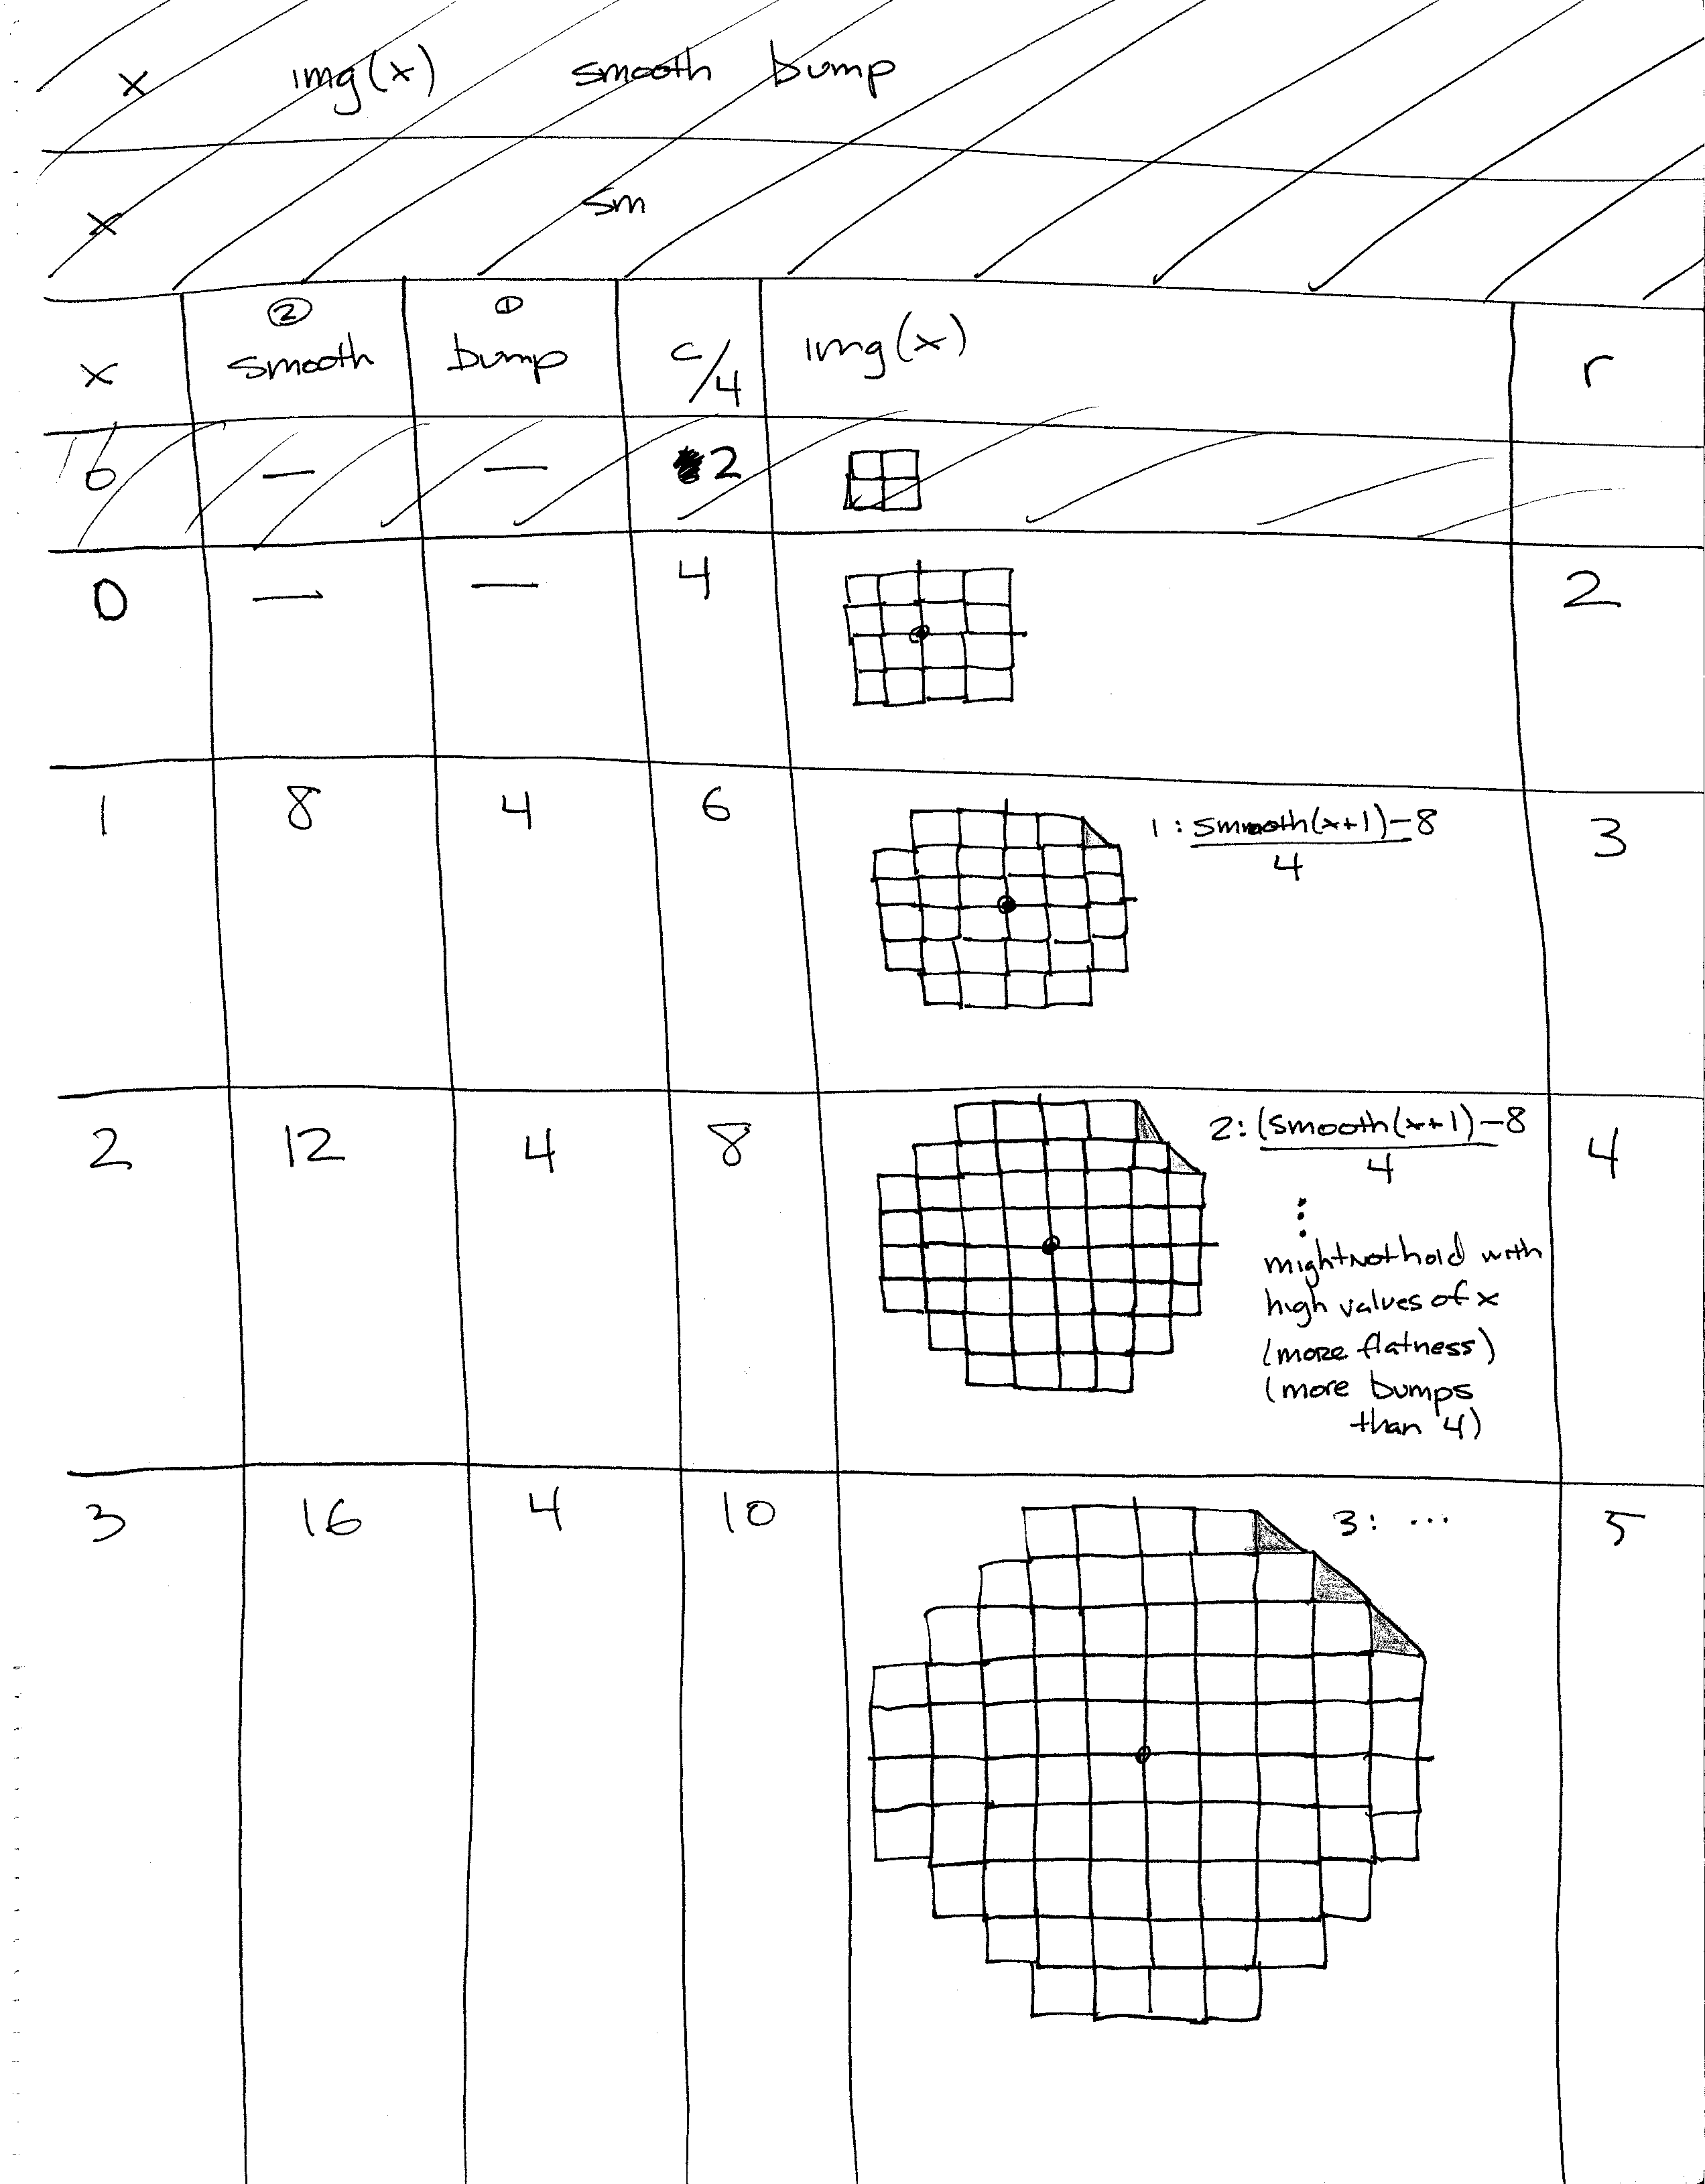 x img(x) smooth bump
x sm
② ①
x smooth bump c/4 img(x) r
0 — — 2
0 — — 4 2
1 8 4 6 1: smooth(x+1)-8 3
4
2 12 4 8 2: (smooth(x+1)-8 4
4
⋮
might not hold with
high values of x
(more flatness)
(more bumps
than 4)
3 16 4 10 3: ... 5